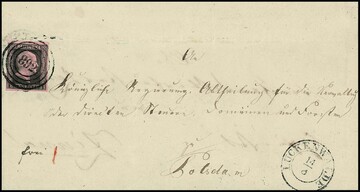 892
An
Königliche Regierung, Abtheilung für die Verwaltung
der direkten Steuern, Domainen und Forsten
zu
Potsdam
frei
LUCKENWALDE
14